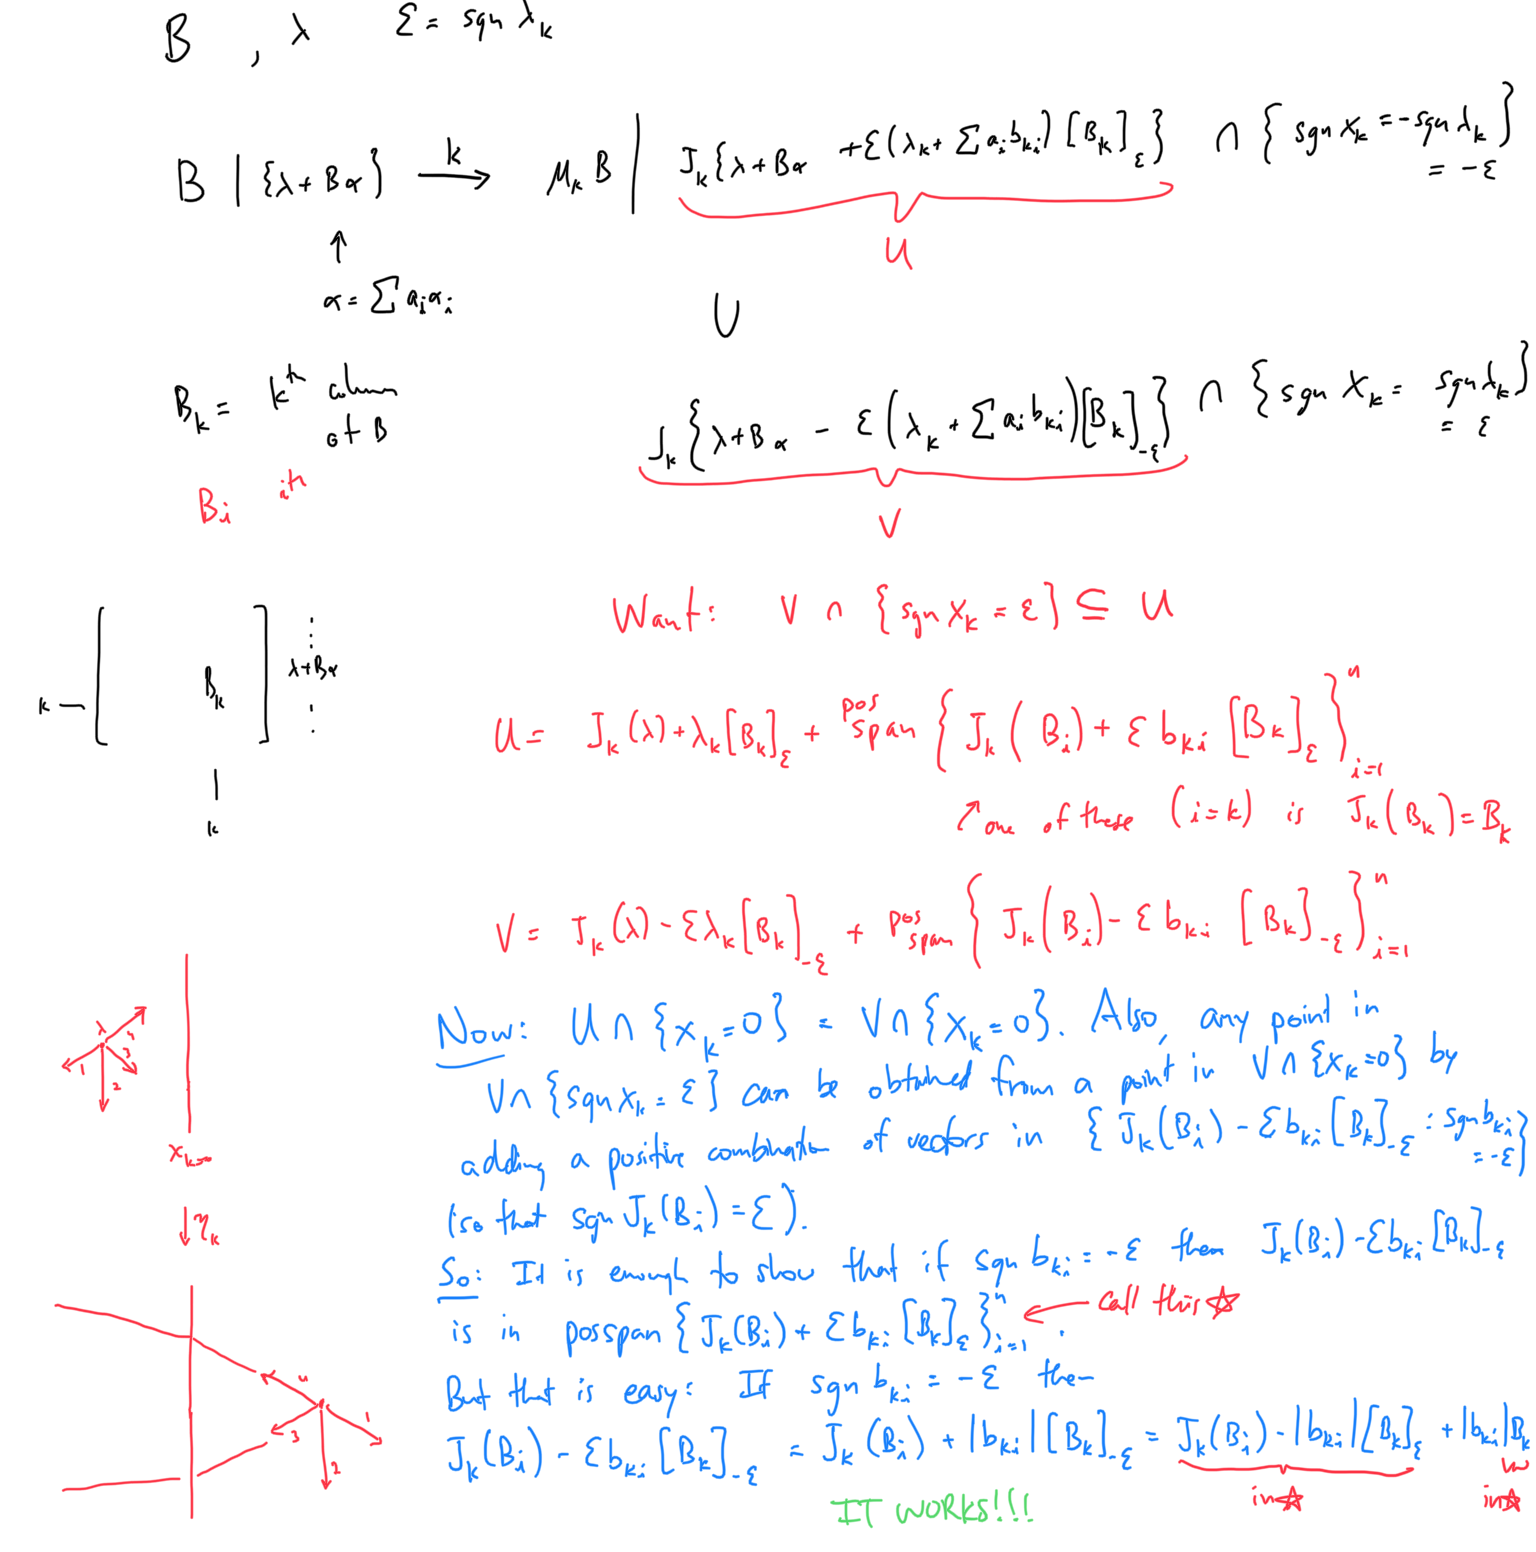 B , λ ε = sgn λ_k
B | {λ+Bα} →^k μ_k B | J_k{λ+Bα +ε(λ_k+ ∑a_i b_{ki}) [B_k]_ε} ∩ {sgn x_k = -sgn λ_k}
= -ε
U
↑
α = ∑ a_i α_i
∪
B_k = k^{th} column
of B
J_k{λ+Bα - ε(λ_k + ∑ a_i b_{ki})[B_k]_{-ε}} ∩ {sgn x_k = sgn λ_k}
= ε
B_i i^{th}
V
Want: V ∩ {sgn x_k = ε} ⊆ U
k — [ B_k ] ⋮ λ+Bα ⋮
|
k
U = J_k(λ)+λ_k[B_k]_ε + pos span {J_k(B_i)+ ε b_{ki} [B_k]_ε}_{i=1}^n
↗ one of these (i=k) is J_k(B_k) = B_k
V = J_k(λ) - ελ_k[B_k]_{-ε} + pos span {J_k(B_i) - ε b_{ki} [B_k]_{-ε}}_{i=1}^n
λ 1 2 3 4
x_k=0
↓η_k
4 1 3 2
Now: U ∩ {x_k=0} = V ∩ {x_k=0}. Also, any point in
V ∩ {sgn x_k = ε} can be obtained from a point in V ∩ {x_k=0} by
adding a positive combination of vectors in {J_k(B_i) - εb_{ki}[B_k]_{-ε} : sgn b_{ki}
= -ε}
(so that sgn J_k(B_i) = ε).
So: It is enough to show that if sgn b_{ki} = -ε then J_k(B_i) - εb_{ki}[B_k]_{-ε}
is in posspan {J_k(B_i) + εb_{ki}[B_k]_ε}_{i=1}^n . ← call this ☆
But that is easy: If sgn b_{ki} = -ε then
J_k(B_i) - εb_{ki}[B_k]_{-ε} = J_k(B_i) + |b_{ki}|[B_k]_{-ε} = J_k(B_i) - |b_{ki}|[B_k]_ε + |b_{ki}|B_k
in ☆ in ☆
IT WORKS!!!